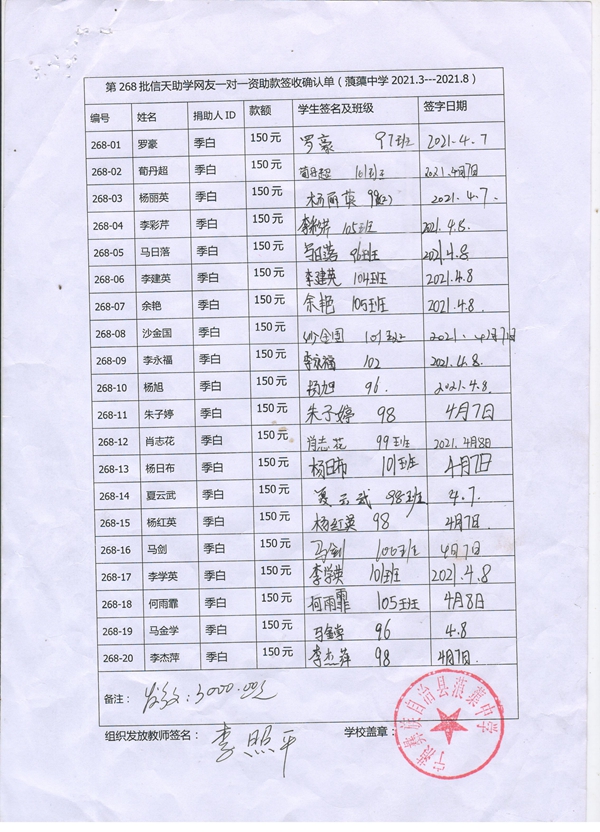 第 268 批信天助学网友一对一资助款签收确认单（蒗蕖中学 2021.3---2021.8）
编号 姓名 捐助人 ID 款额 学生签名及班级 签字日期
268-01 罗豪 季白 150 元 罗豪 97班 2021.4.7
268-02 荀丹超 季白 150 元 荀丹超 101班 2021.4月7日
268-03 杨丽英 季白 150 元 杨丽英 98班 2021.4.7.
268-04 李彩芹 季白 150 元 李彩芹 105班 2021.4.8.
268-05 马日落 季白 150 元 马日落 96班 2021.4.8
268-06 李建英 季白 150 元 李建英 104班 2021.4.8
268-07 余艳 季白 150 元 余艳 105班 2021.4.8.
268-08 沙金国 季白 150 元 沙金国 101班 2021. 4月7日
268-09 李永福 季白 150 元 李永福 102 2021.4.8.
268-10 杨旭 季白 150 元 杨旭 96. 2021.4.8.
268-11 朱子婷 季白 150 元 朱子婷 98 4月7日
268-12 肖志花 季白 150 元 肖志花 99班 2021.4月8日
268-13 杨日布 季白 150 元 杨日布 101班 4月7日
268-14 夏云武 季白 150 元 夏云武 98班 4.7.
268-15 杨红英 季白 150 元 杨红英 98 4月7日.
268-16 马剑 季白 150 元 马剑 100班 4月7日
268-17 李学英 季白 150 元 李学英 101班 2021.4.8
268-18 何雨霏 季白 150 元 何雨霏 105班 4月8日
268-19 马金学 季白 150 元 马金学 96 4.8
268-20 李杰萍 季白 150 元 李杰萍 98 4月7日.
备注： 发放:3000.00元
组织发放教师签名： 李照平 学校盖章：
宁蒗彝族自治县蒗蕖中学